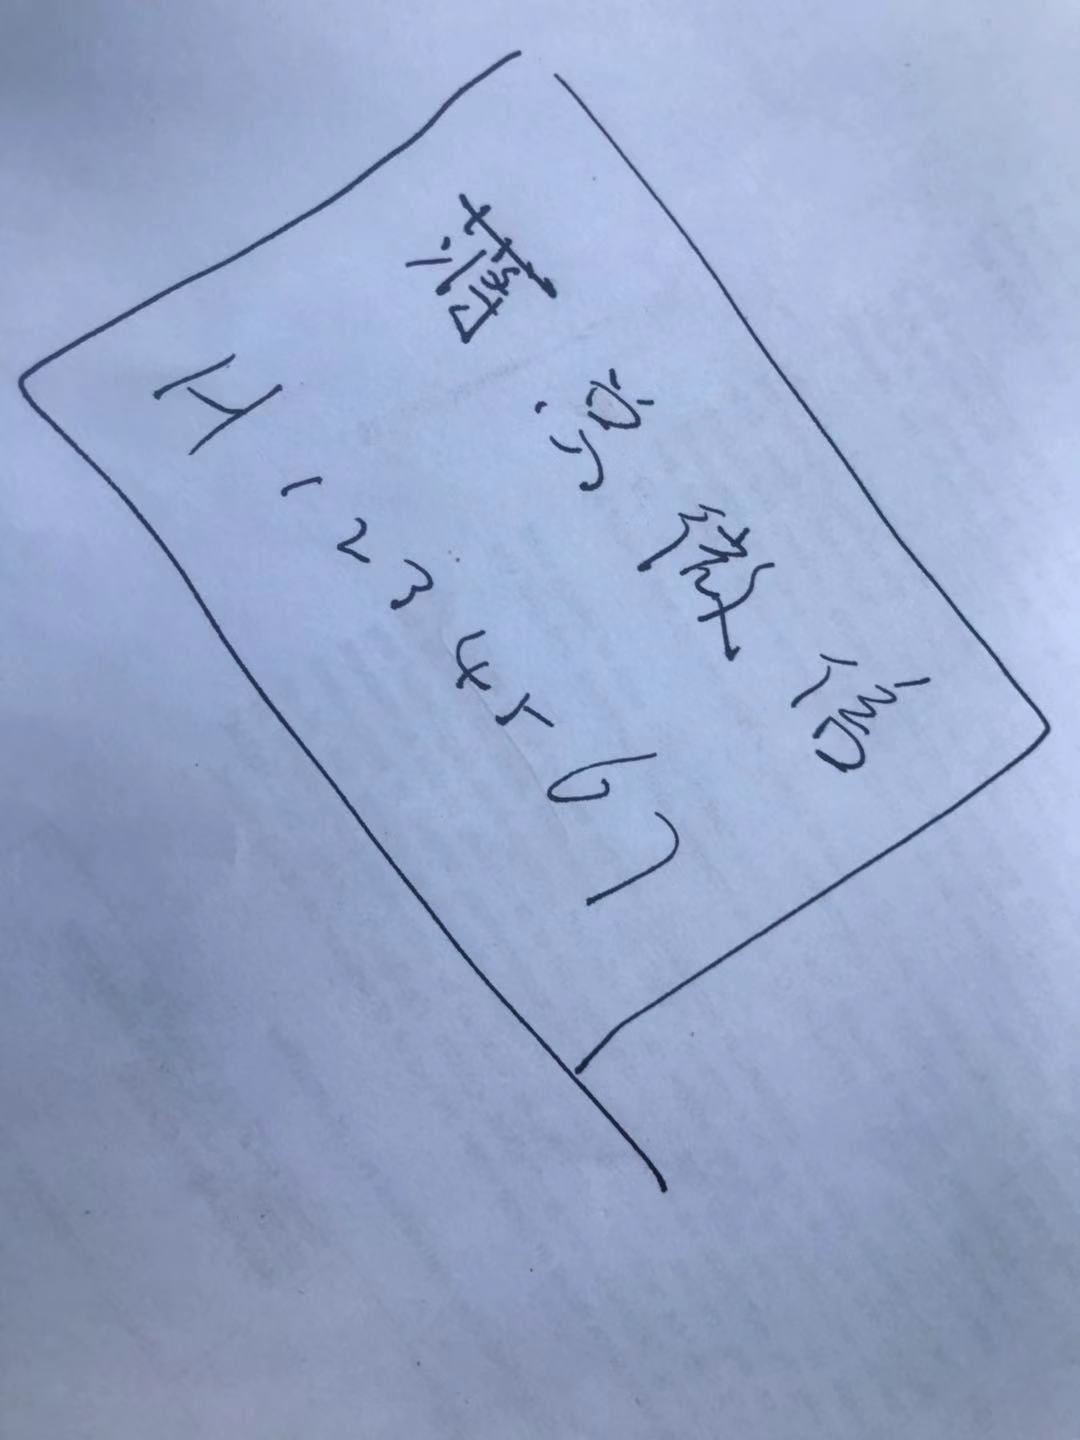 薄亮微信
H1234567